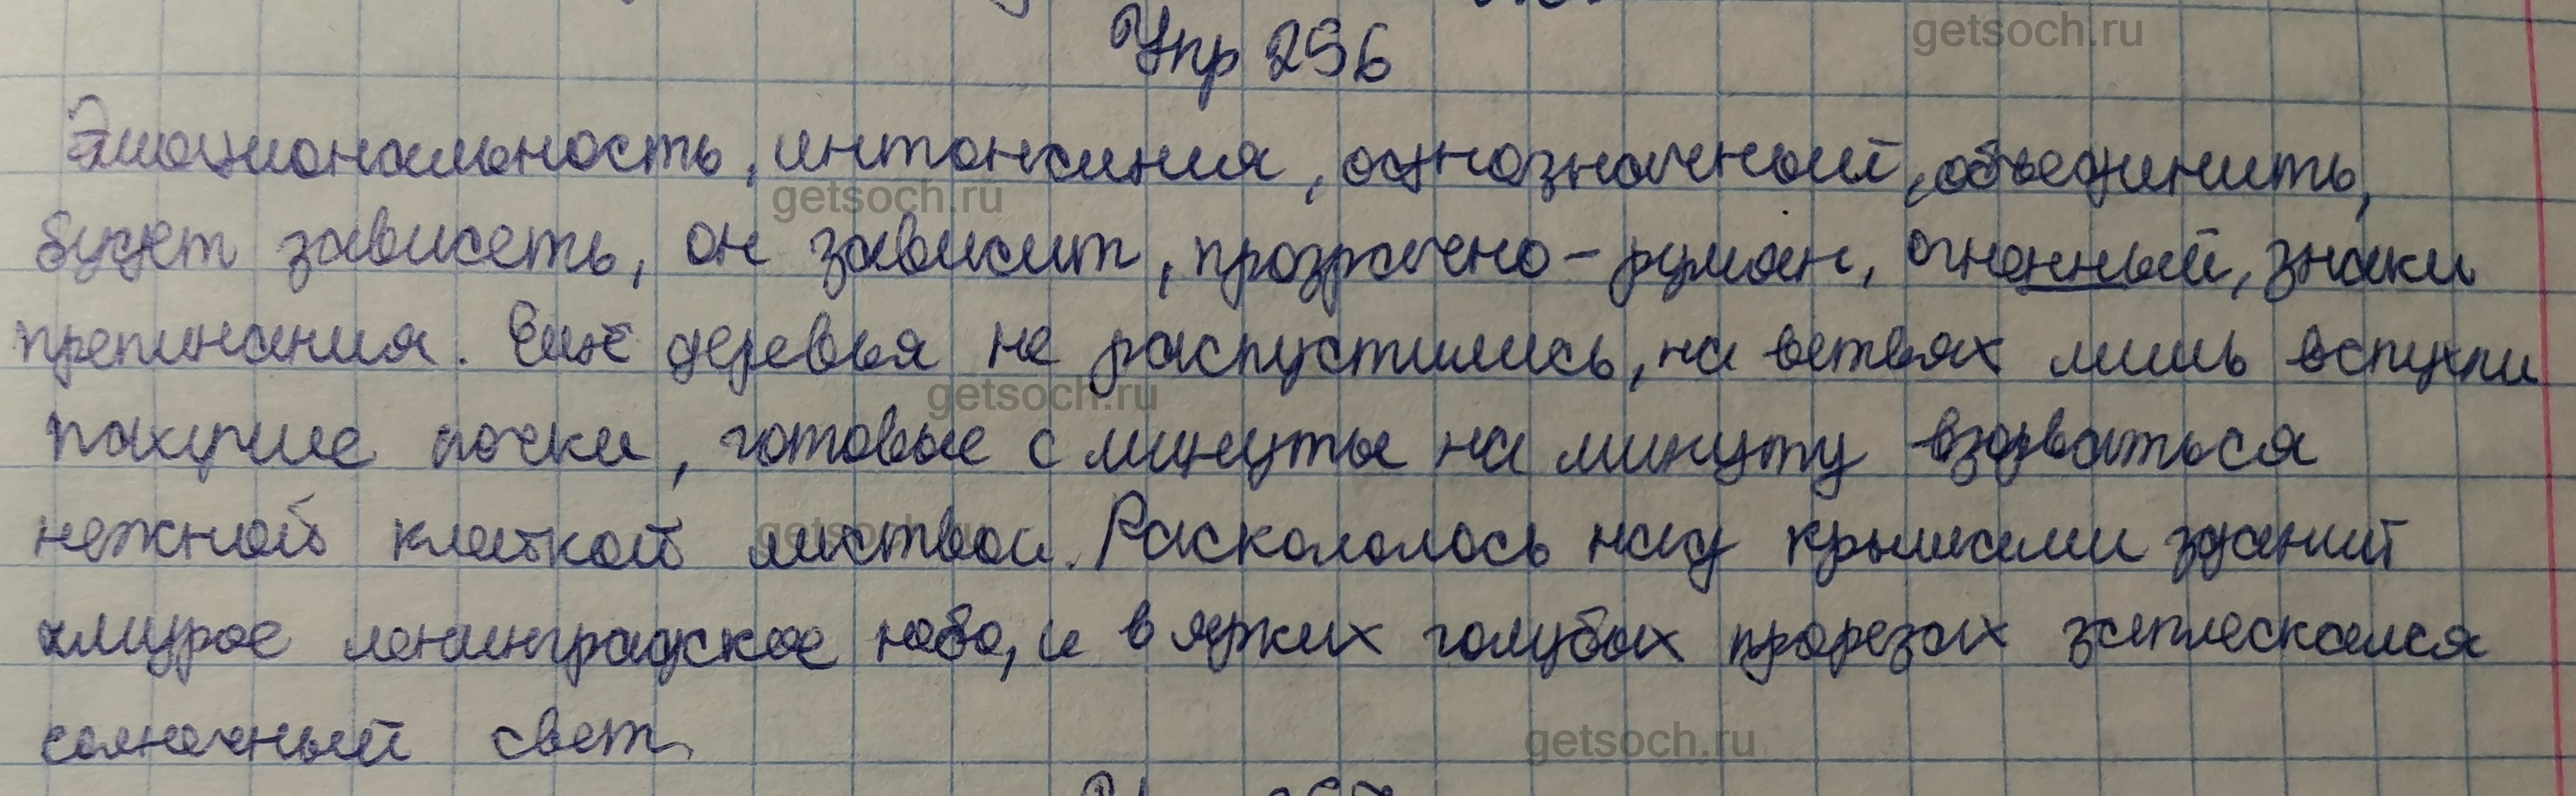 Упр 296
Эмоциональность, интонация, однозначный, объединить,
будет зависеть, он зависит, прозрачно-румян, огненный, знаки
препинания. Ещё деревья не распустились, на ветвях лишь вспухли
пахучие почки, готовые с минуты на минуту взорваться
нежной клейкой листвой. Раскололось над крышами зданий
хмурое ленинградское небо, и в ярких голубых прорезах заплескался
солнечный свет.
getsoch.ru
getsoch.ru
getsoch.ru
getsoch.ru
getsoch.ru